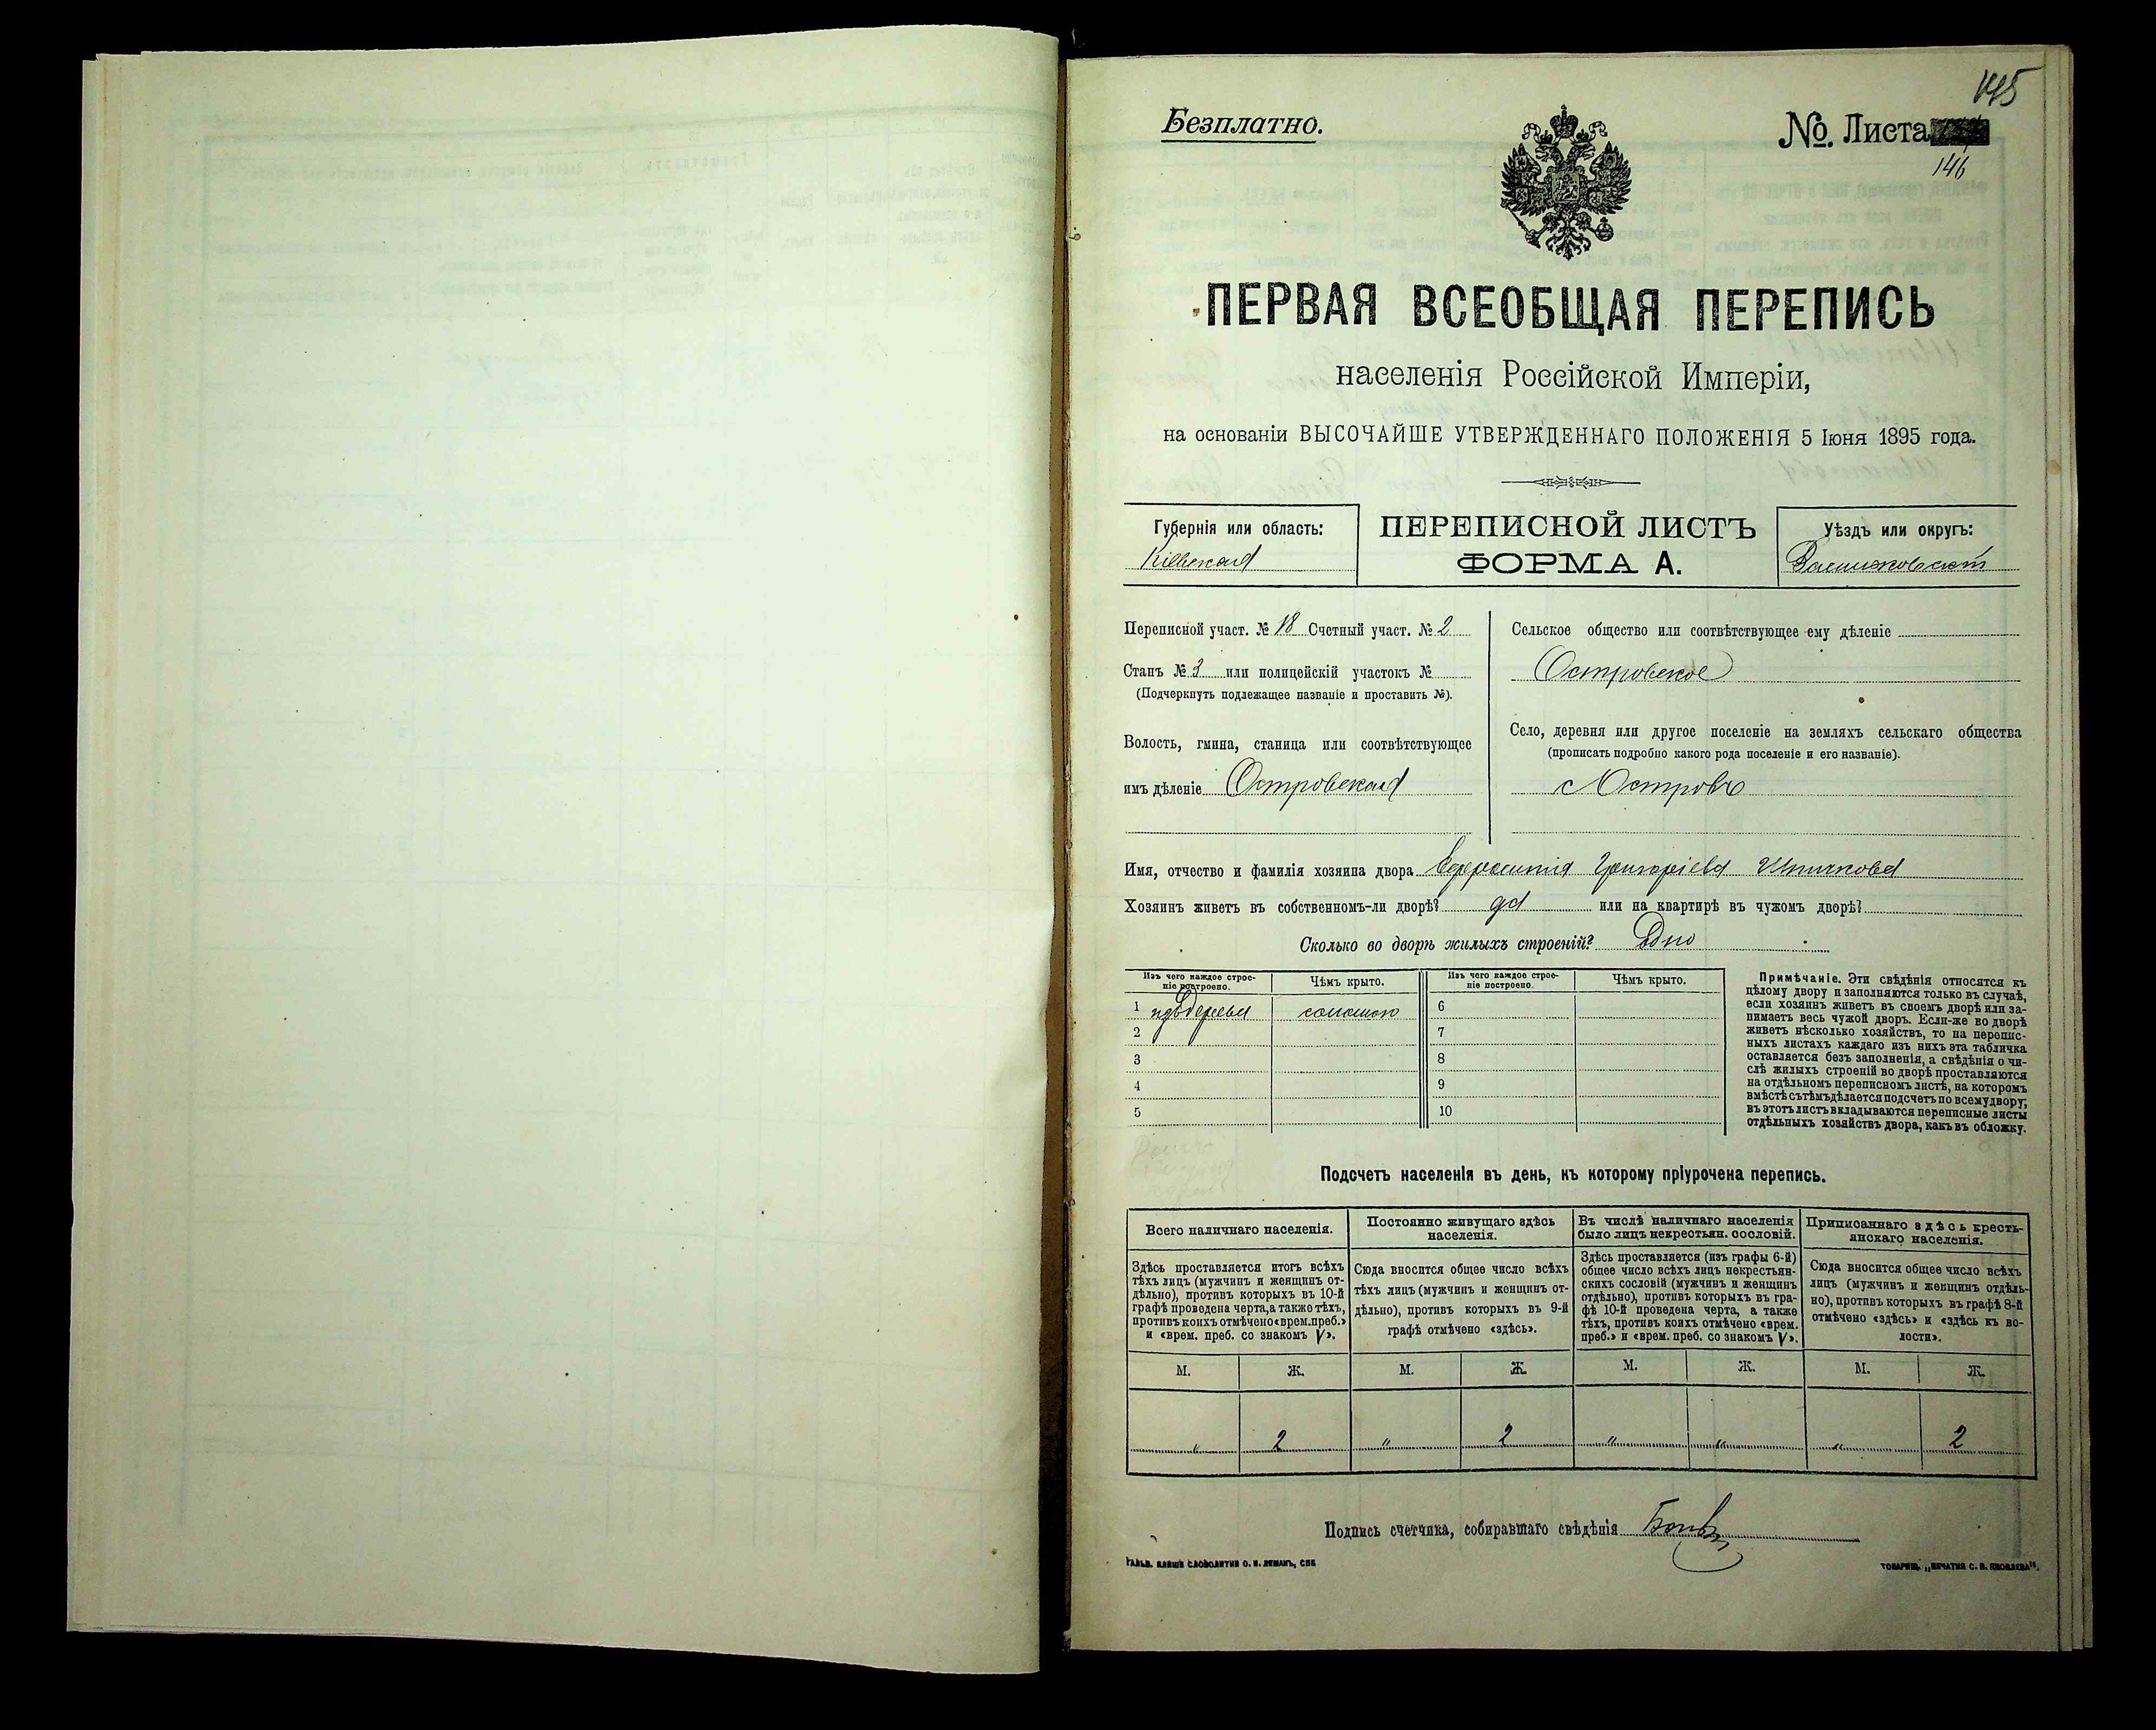 145
Безплатно.
№. Листа
146
ПЕРВАЯ ВСЕОБЩАЯ ПЕРЕПИСЬ
населенія Россійской Имперіи,
на основаніи ВЫСОЧАЙШЕ УТВЕРЖДЕННАГО ПОЛОЖЕНІЯ 5 Іюня 1895 года.
Губернія или область:
Кіевская
ПЕРЕПИСНОЙ ЛИСТЪ
ФОРМА А.
Уѣздъ или округъ:
Переписной участ. № 18 Счетный участ. № 2
Станъ № 3 или полицейскій участокъ №
(Подчеркнуть подлежащее названіе и проставить №).
Волость, гмина, станица или соотвѣтствующее
имъ дѣленіе Островская
Сельское общество или соотвѣтствующее ему дѣленіе
Островское
Село, деревня или другое поселеніе на земляхъ сельскаго общества
(прописать подробно какого рода поселеніе и его названіе).
с Островъ
Имя, отчество и фамилія хозяина двора Ефросинія Григоріева Шпичкова
Хозяинъ живетъ въ собственномъ-ли дворѣ? да или на квартирѣ въ чужомъ дворѣ?
Сколько во дворѣ жилыхъ строеній? Одно
Изъ чего каждое строе-
ніе построено.
Чѣмъ крыто.
Изъ чего каждое строе-
ніе построено.
Чѣмъ крыто.
1 изъ дерева соломою 6
2 7
3 8
4 9
5 10
Примѣчаніе. Эти свѣдѣнія относятся къ
цѣлому двору и заполняются только въ случаѣ,
если хозяинъ живетъ въ своемъ дворѣ или за-
нимаетъ весь чужой дворъ. Если-же во дворѣ
живетъ нѣсколько хозяйствъ, то на перепис-
ныхъ листахъ каждаго изъ нихъ эта табличка
оставляется безъ заполненія, а свѣдѣнія о чи-
слѣ жилыхъ строеній во дворѣ проставляются
на отдѣльномъ переписномъ листѣ, на которомъ
вмѣстѣ съ тѣмъ дѣлается подсчетъ по всему двору;
въ этотъ листъ вкладываются переписные листы
отдѣльныхъ хозяйствъ двора, какъ въ обложку.
Подсчетъ населенія въ день, къ которому пріурочена перепись.
Всего наличнаго населенія.
Постоянно живущаго здѣсь
населенія.
Въ числѣ наличнаго населенія
было лицъ некрестьян. сословій.
Приписаннаго здѣсь кресть-
янскаго населенія.
Здѣсь проставляется итогъ всѣхъ
тѣхъ лицъ (мужчинъ и женщинъ от-
дѣльно), противъ которыхъ въ 10-й
графѣ проведена черта, а также тѣхъ,
противъ коихъ отмѣчено «врем. преб.»
и «врем. преб. со знакомъ V».
Сюда вносится общее число всѣхъ
тѣхъ лицъ (мужчинъ и женщинъ от-
дѣльно), противъ которыхъ въ 9-й
графѣ отмѣчено «здѣсь».
Здѣсь проставляется (изъ графы 6-й)
общее число всѣхъ лицъ некрестьян-
скихъ сословій (мужчинъ и женщинъ
отдѣльно), противъ которыхъ въ гра-
фѣ 10-й проведена черта, а также
тѣхъ, противъ коихъ отмѣчено «врем.
преб.» и «врем. преб. со знакомъ V».
Сюда вносится общее число всѣхъ
лицъ (мужчинъ и женщинъ отдѣль-
но), противъ которыхъ въ графѣ 8-й
отмѣчено «здѣсь» и «здѣсь къ во-
лости».
М. Ж. М. Ж. М. Ж. М. Ж.
" 2 " 2 " " " 2
Подпись счетчика, собиравшаго свѣдѣнія
ГАЛЬВ. КЛИШЕ СЛОВОЛИТНИ О. И. ЛЕМАНЪ, СПБ
ТОВАРИЩ. „ПЕЧАТНЯ С. П. ЯКОВЛЕВА“.